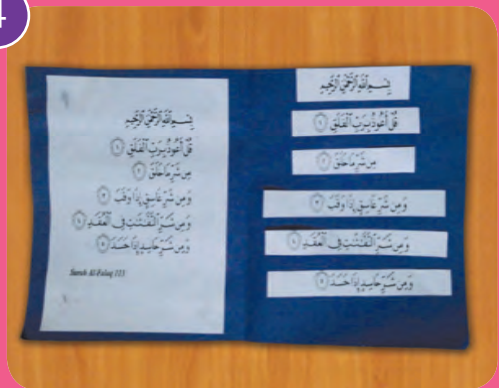 4
بِسْمِ ٱللَّهِ ٱلرَّحْمَٰنِ ٱلرَّحِيمِ
قُلْ أَعُوذُ بِرَبِّ ٱلْفَلَقِ ١
مِن شَرِّ مَا خَلَقَ ٢
وَمِن شَرِّ غَاسِقٍ إِذَا وَقَبَ ٣
وَمِن شَرِّ ٱلنَّفَّٰثَٰتِ فِى ٱلْعُقَدِ ٤
وَمِن شَرِّ حَاسِدٍ إِذَا حَسَدَ ٥
Surah Al-Falaq 113
بِسْمِ ٱللَّهِ ٱلرَّحْمَٰنِ ٱلرَّحِيمِ
قُلْ أَعُوذُ بِرَبِّ ٱلْفَلَقِ ١
مِن شَرِّ مَا خَلَقَ ٢
وَمِن شَرِّ غَاسِقٍ إِذَا وَقَبَ ٣
وَمِن شَرِّ ٱلنَّفَّٰثَٰتِ فِى ٱلْعُقَدِ ٤
وَمِن شَرِّ حَاسِدٍ إِذَا حَسَدَ ٥